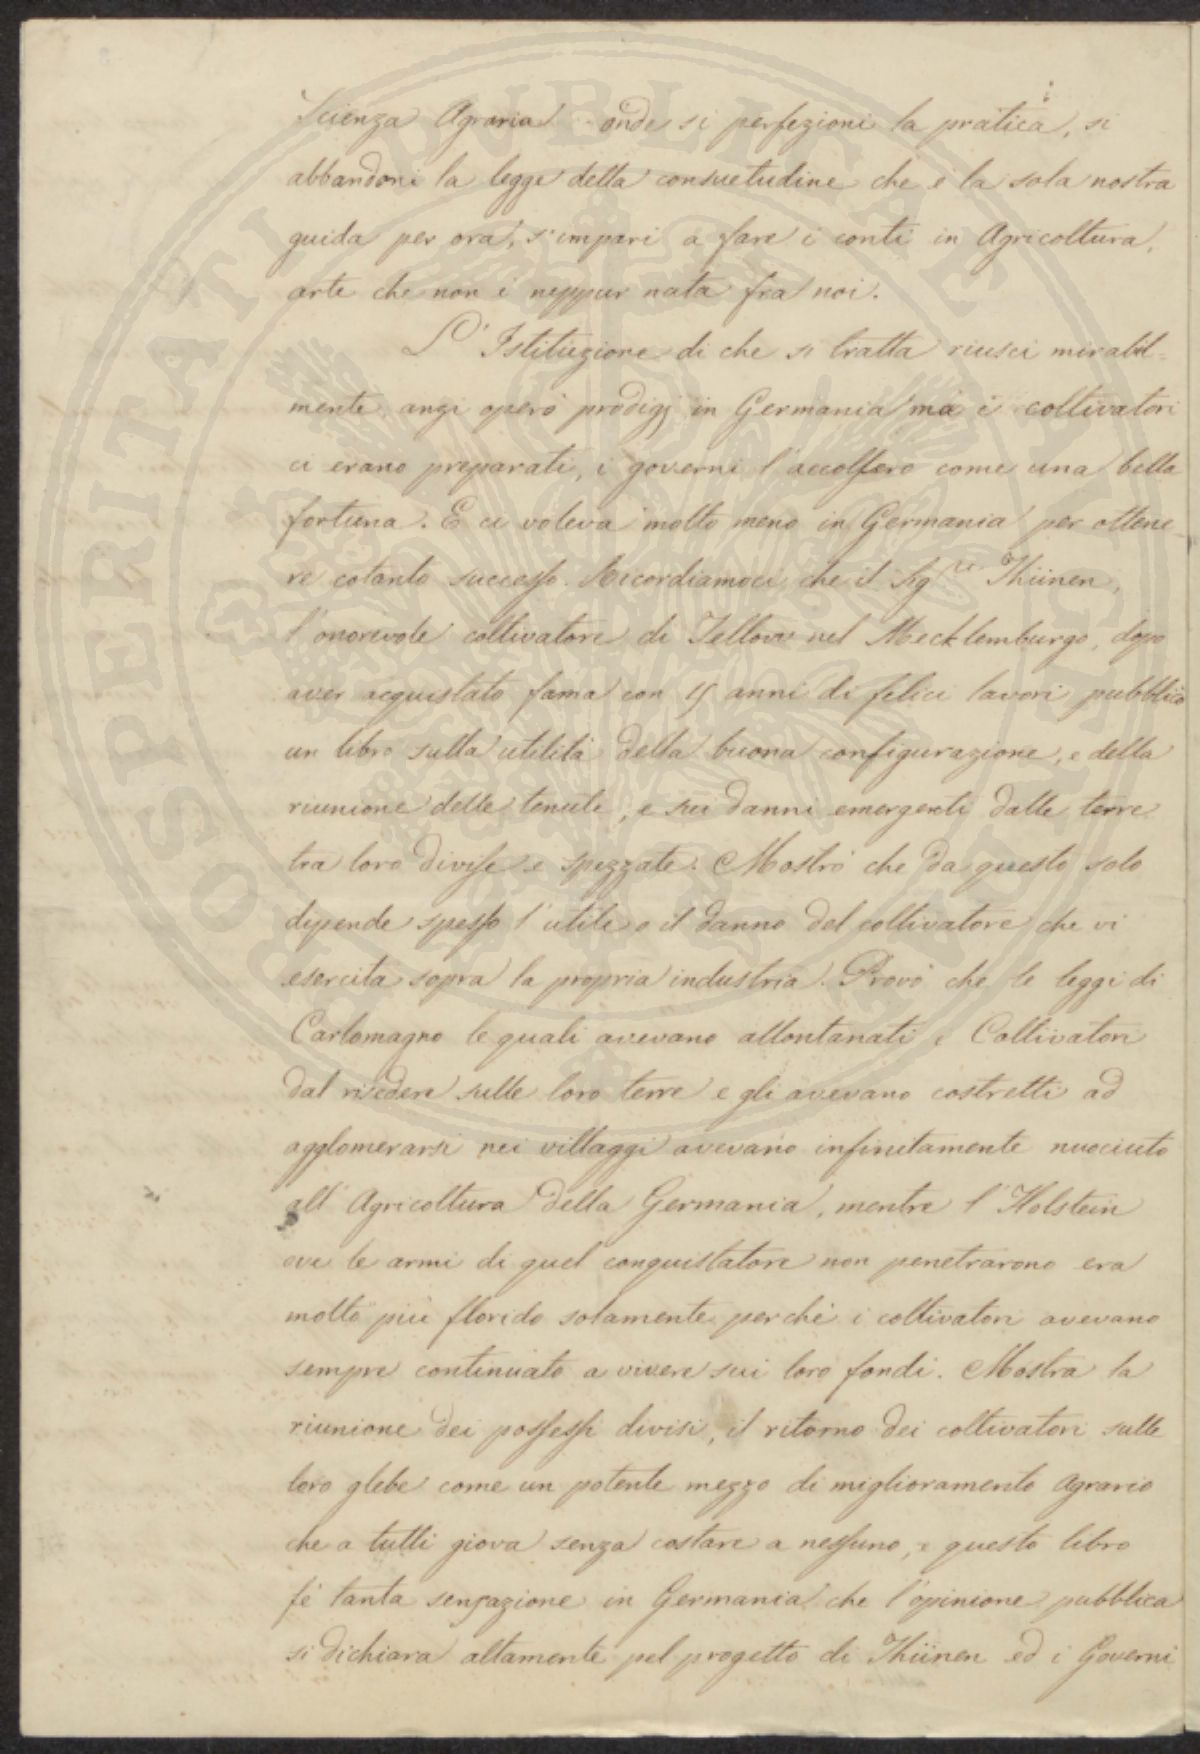 Scienza Agraria onde si perfezioni la pratica, si
abbandoni la legge della consuetudine che è la sola nostra
guida per ora, s'impari a fare i conti in Agricoltura,
arte che non è neppur nata fra noi.
L'Istituzione di che si tratta riuscì mirabil=
mente, anzi operò prodigj in Germania ma i coltivatori
ci erano preparati, i governi l'accolsero come una bella
fortuna. E ci voleva molto meno in Germania per ottene
re cotanto successo. Ricordiamoci che il Sig.re Thünen,
l'onorevole coltivatore di Tellow nel Mecklemburgo, dopo
aver acquistato fama con 15 anni di felici lavori pubblicò
un libro sulla utilità della buona configurazione, e della
riunione delle tenute, e sui danni emergenti dalle terre
tra loro divise e spezzate. Mostrò che da questo solo
dipende spesso l'utile o il danno del coltivatore che vi
esercita sopra la propria industria. Provò che le leggi di
Carlomagno le quali avevano allontanati i Coltivatori
dal risedere sulle loro terre e gli avevano costretti ad
agglomerarsi nei villaggi avevano infinitamente nuociuto
all'Agricoltura della Germania, mentre l'Holstein
ove le armi di quel conquistatore non penetrarono era
molto più florido solamente perchè i coltivatori avevano
sempre continuato a vivere sui loro fondi. Mostra la
riunione dei possessi divisi, il ritorno dei coltivatori sulle
loro glebe come un potente mezzo di miglioramento Agrario
che a tutti giova senza costare a nessuno, e questo libro
fè tanta sensazione in Germania che l'opinione pubblica
si dichiara altamente pel progetto di Thünen ed i Governi
PROSPERITATI PUBLICAE AUGENDAE